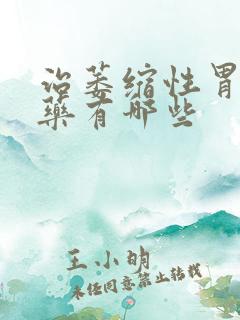 治萎缩性胃
藥有哪些
王小明
未经同意禁止转载